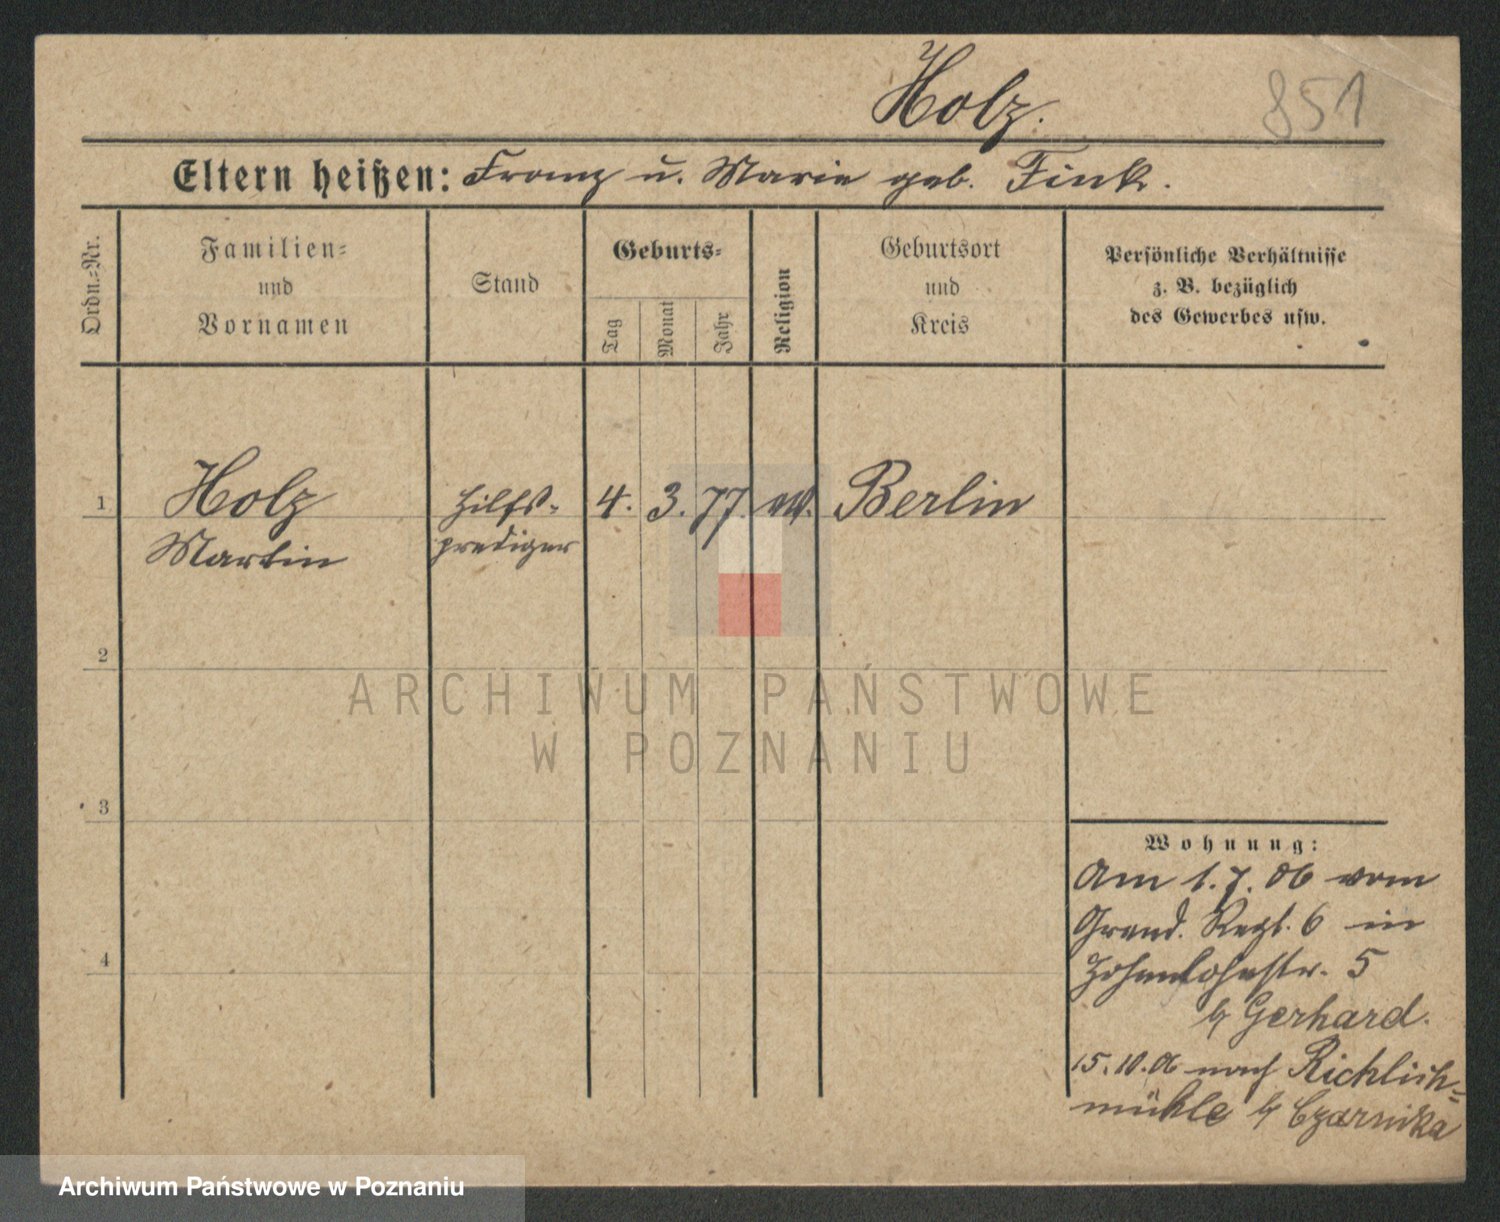 Holz.
851
Eltern heißen: Franz u. Marie geb. Fink.
Ordn.=Nr.
Familien=
und
Vornamen
Stand
Geburts=
Tag
Monat
Jahr
Religion
Geburtsort
und
Kreis
Persönliche Verhältnisse
z. B. bezüglich
des Gewerbes usw.
1
Holz
Martin
Hilfs-
prediger
4. 3. 77. ev. Berlin
2
ARCHIWUM PAŃSTWOWE
W POZNANIU
3
4
Wohnung:
Am 1.7.06 vom
Grend. Regt. 6 in
Hohenlohestr. 5
b/ Gerhard.
15.10.06 nach Richlich=
mühle b/ Czarnika
Archiwum Państwowe w Poznaniu